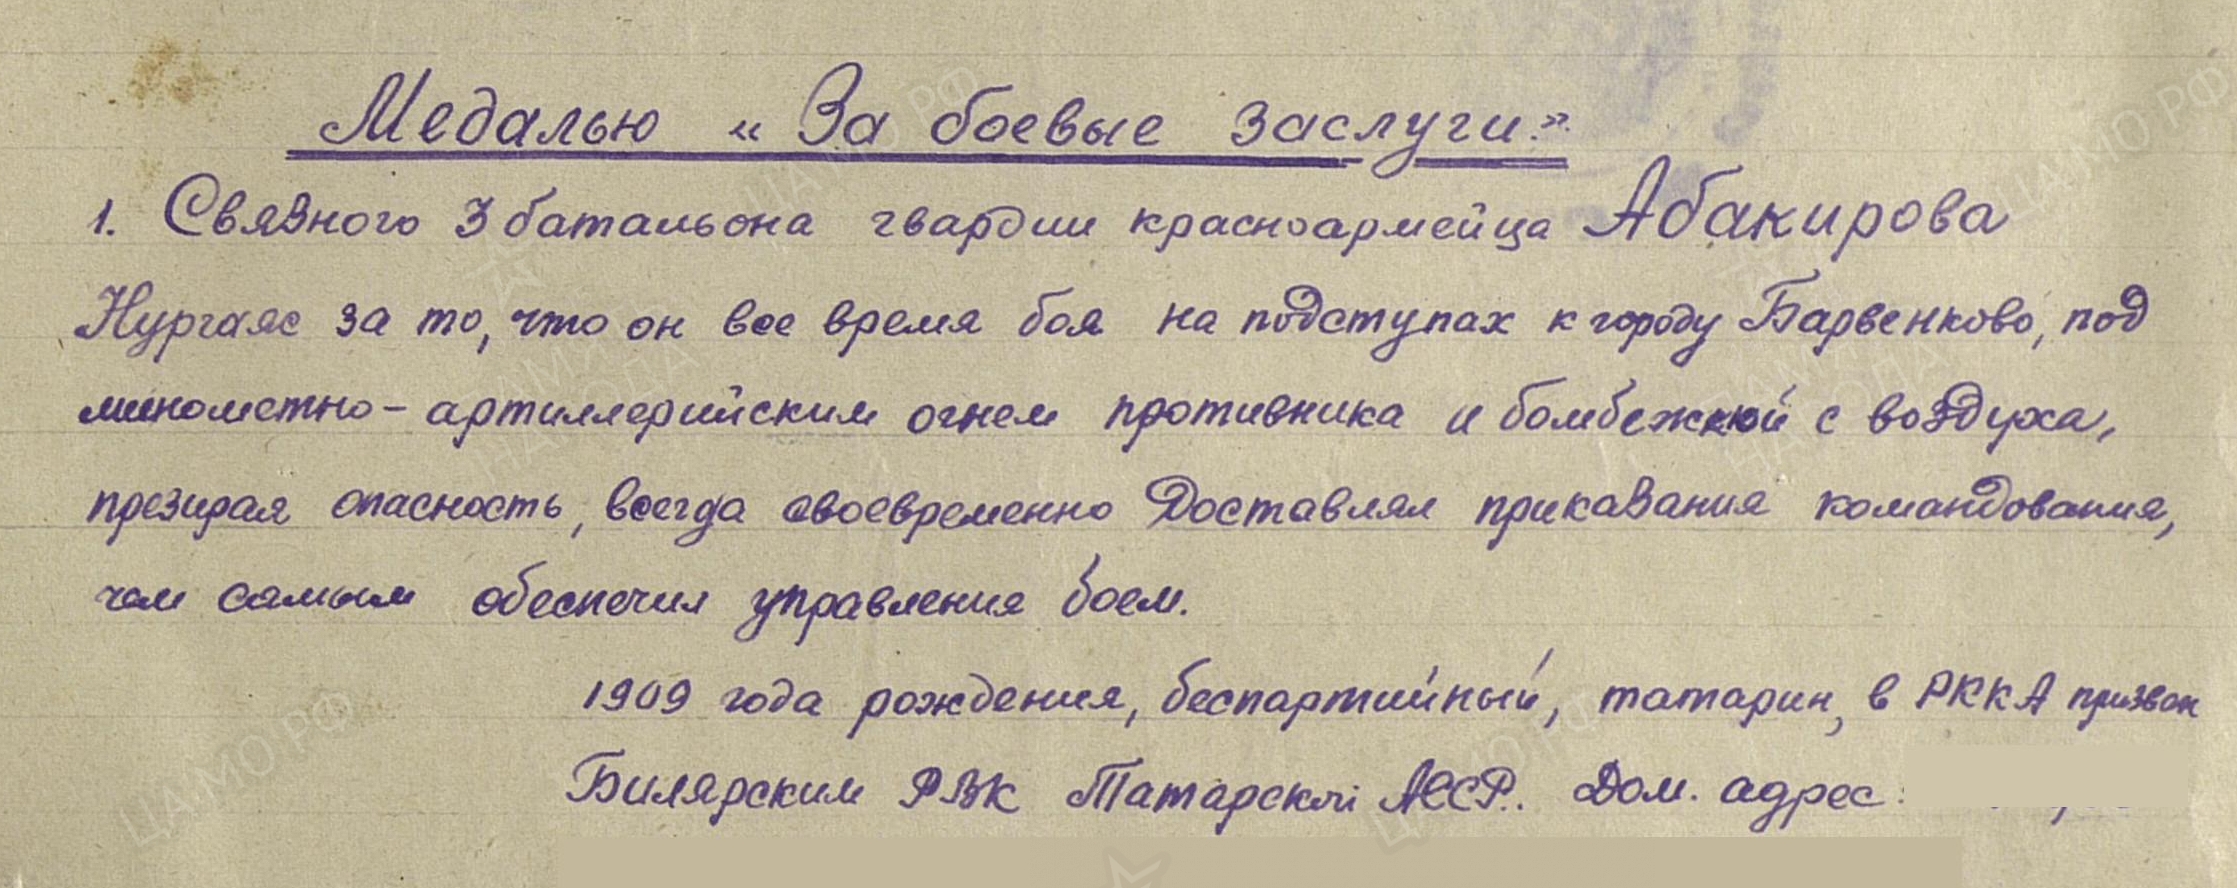 Медалью « За боевые заслуги.»
1. Связного 3 батальона гвардии красноармейца Абакирова
Нургаяс за то, что он все время боя на подступах к городу Барвенково, под
минометно-артиллерийским огнем противника и бомбежкой с воздуха,
презирая опасность, всегда своевременно доставлял приказания командования,
чем самым обеспечил управления боем.
1909 года рождения, беспартийный, татарин, в РККА призван
Билярским РВК Татарской АССР. Дом. адрес:
ЦАМО.РФ
ЦАМО.РФ
ПАМЯТЬ НАРОДА
ЦАМО.РФ
ЦАМО.РФ